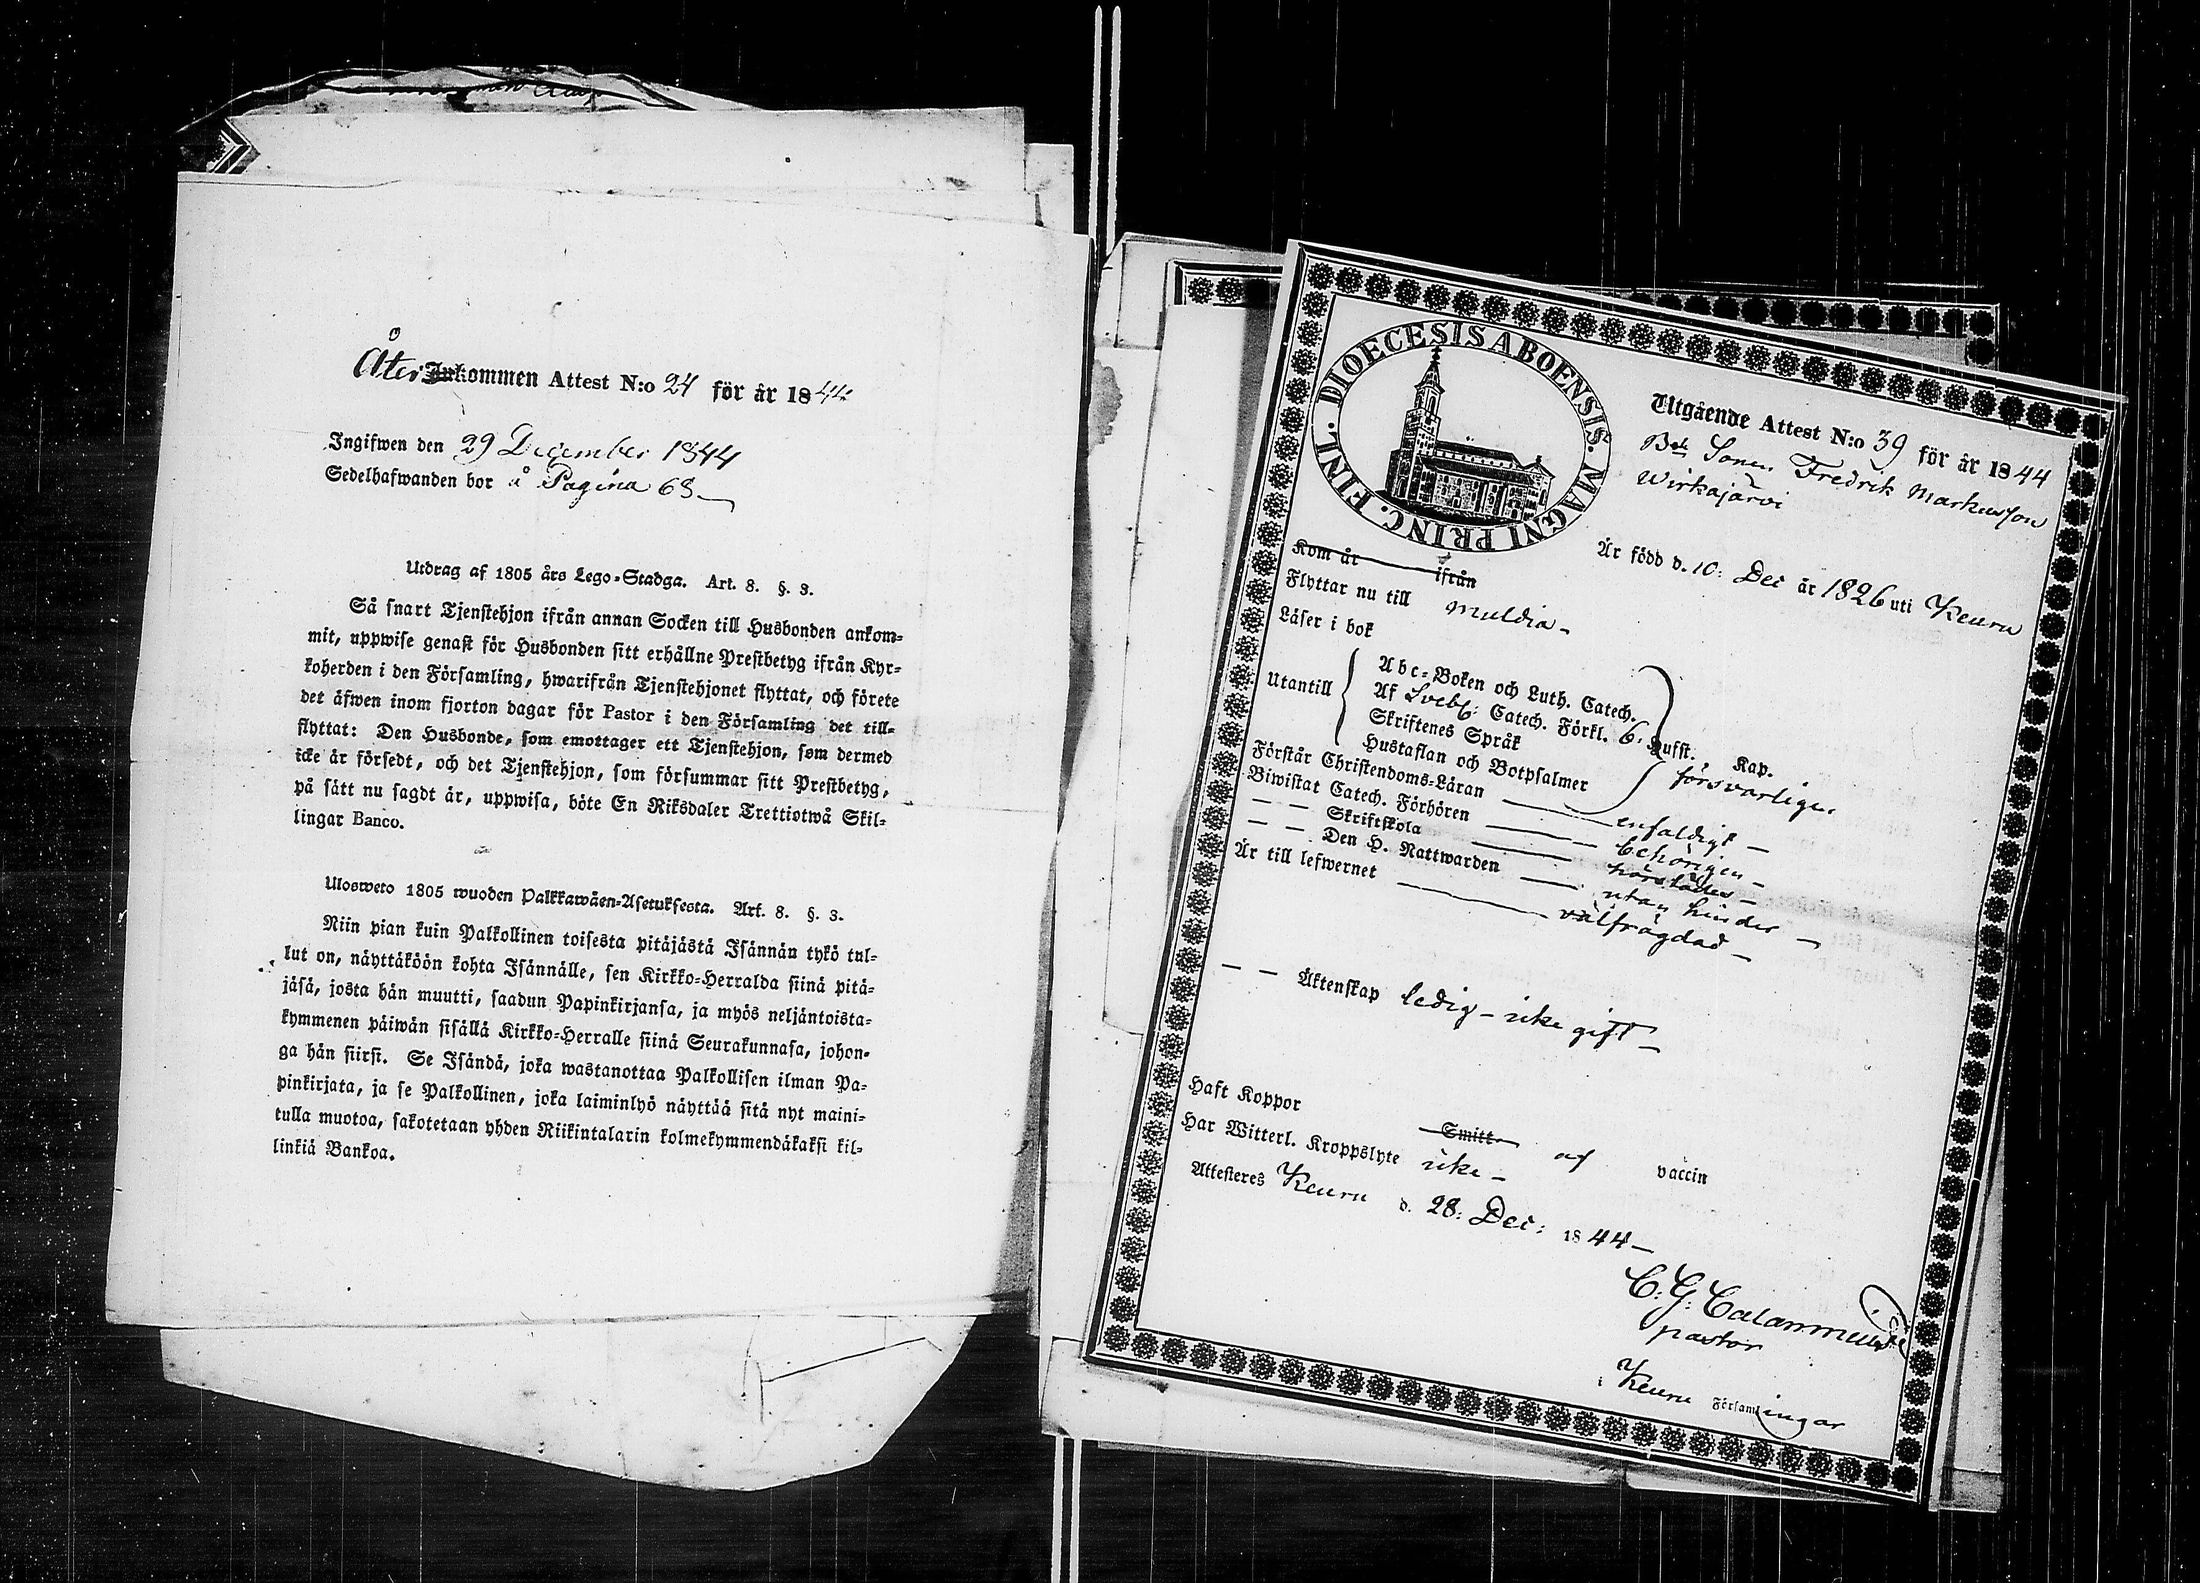 ÅterInkommen Attest N:o 24 för år 1844
Ingifwen den 29 December 1844
Sedelhafwanden bor å Pagina 63
Utdrag af 1805 års Lego-Stadga. Art. 8. §. 3.
Så snart Tjenstehjon ifrån annan Socken till Husbonden ankom-
mit, uppwise genast för Husbonden sitt erhållne Prestbetyg ifrån Kyr-
koherden i den Församling, hwarifrån Tjenstehjonet flyttat, och förete
det äfwen inom fjorton dagar för Pastor i den Församling det till-
flyttat: Den Husbonde, som emottager ett Tjenstehjon, som dermed
icke är försedt, och det Tjenstehjon, som försummar sitt Prestbetyg,
på sätt nu sagdt är, uppwisa, böte En Riksdaler Trettiotwå Skil-
lingar Banco.
Ulosweto 1805 wuoden Palkkawäen-Asetuksesta. Art. 8. §. 3.
Niin pian kuin Palkollinen toisesta pitäjästä Isännän tykö tul-
lut on, näyttäköön kohta Isännälle, sen Kirkko-Herralda siinä pitä-
jäsä, josta hän muutti, saadun Papinkirjansa, ja myös neljäntoista-
kymmenen päiwän sisällä Kirkko-Herralle siinä Seurakunnasa, johon-
ga hän siirsi. Se Isändä, joka wastanottaa Palkollisen ilman Pa-
pinkirjata, ja se Palkollinen, joka laiminlyö näyttää sitä nyt maini-
tulla muotoa, sakotetaan yhden Riikintalarin kolmekymmendäkaksi kil-
linkiä Bankoa.
DIOECESIS ABOENSIS. MAGNI PRINC. FINL.
Utgående Attest N:o 39 för år 1844
Bde Sonen Fredrik Markusson
Wirkajärvi
Är född d. 10: Dec år 1826 uti Keuru
Kom år ifrån
Flyttar nu till Muldia -
Läser i bok
Utantill
Abc-Boken och Luth. Catech.
Af Sveb: Catech. Förkl. 6. Hufst.
Skriftenes Språk Kap.
Hustaflan och Botpsalmer försvarligen
Förstår Christendoms-Läran enfaldigt -
Biwistat Catech. Förhören behörigen -
— — Skriftskola härstädes -
— — Den H. Nattwarden utan hinder -
Är till lefwernet välfrägdad -
— — Äktenskap ledig - icke gift -
Haft Koppor Smitt af vaccin
Har Witterl. Kroppslyte icke -
Attesteras Keuru d. 28: Dec: 1844 -
C. G: Calamnius
pastor
i Keuru Församlingar